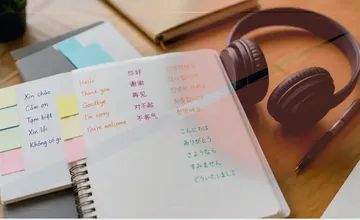 Xin chào
Cảm ơn
Tạm biệt
Xin lỗi
Không có gì
Hello
Thank you
Goodbye
I'm sorry
You're welcome
你好
谢谢
再见
对不起
不客气
안녕하세요
こんにちは
ありがとう
さようなら
すみません
どういたしまして